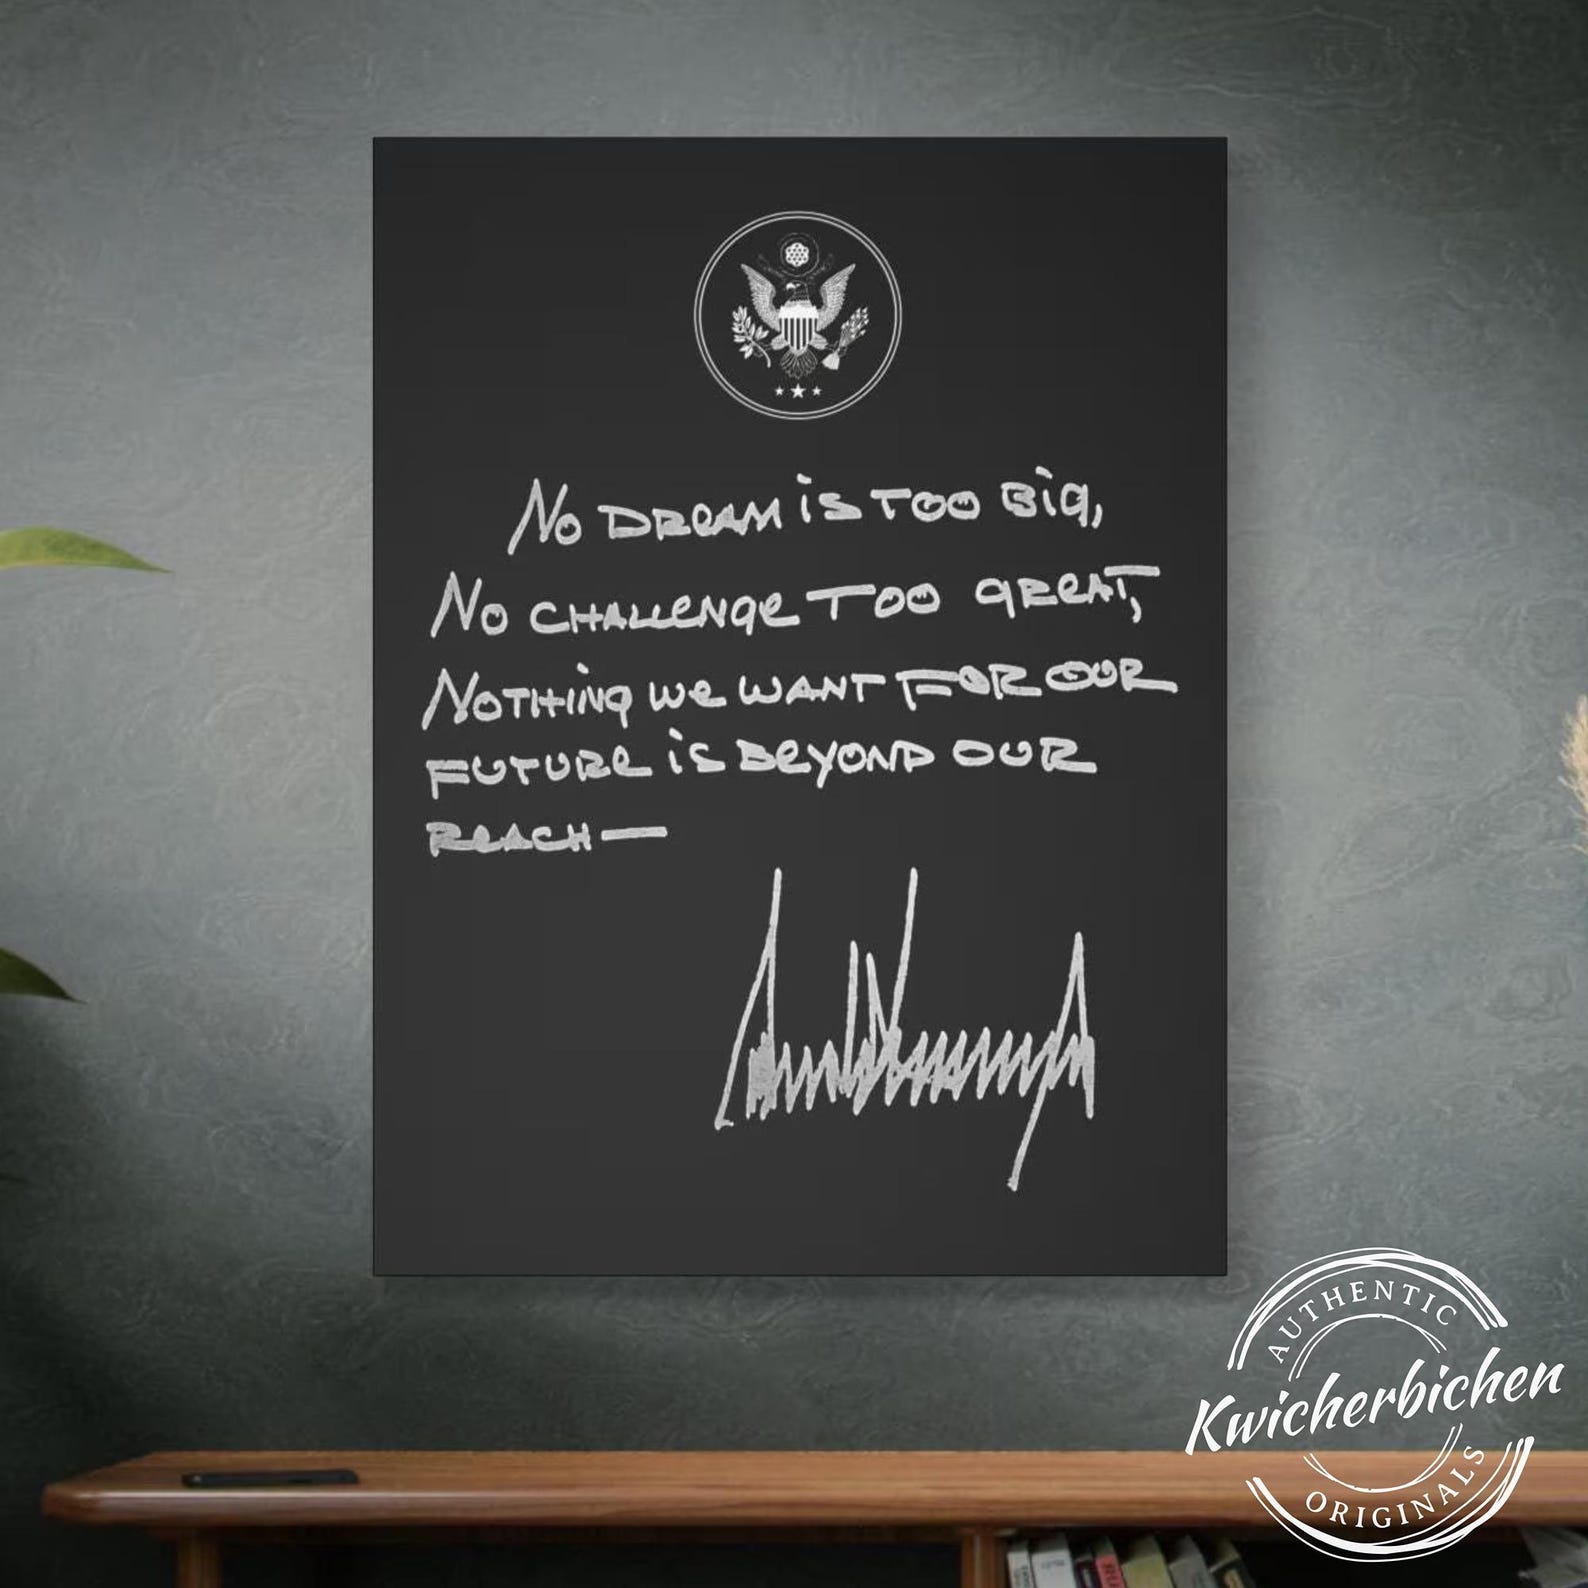 No DReAM iS TOO Big,
No CHALLeNge TOO gReAT,
NOTHiNg we WANT FOR OUR
FUTURe iS BeYOND OUR
ReACH—
AUTHENTIC
Kwicherbichen
ORIGINALS